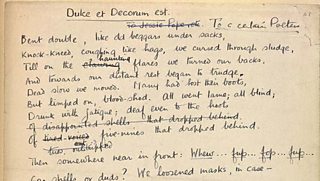 Dulce et Decorum est.
To Jessie Pope etc. To a certain Poetess
Bent double, like old beggars under sacks,
Knock-kneed, coughing like hags, we cursed through sludge,
haunting
Till on the clawing flares we turned our backs,
And towards our distant rest began to trudge.
Dead slow we moved. Many had lost their boots,
But limped on, blood-shod. All went lame; all blind;
Drunk with fatigue; deaf even to the hoots
Of disappointed shells that dropped behind.
Of tired-voiced five-nines that dropped behind.
Then somewhere near in front: Whew... fup.. fop.. fup...
Gas shells or duds? We loosened masks, in case —